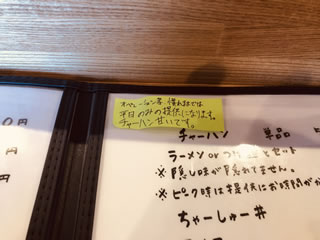 オペレーション 慣れるまでは
平日のみの提供になります。
チャーハン甘いです。
0円
円
円
チャーハン 単品
ラーメン or つけ とセット
※隠し味が隠れてません。
※ピーク時は提供にお時間がか
ちゃーしゅー丼